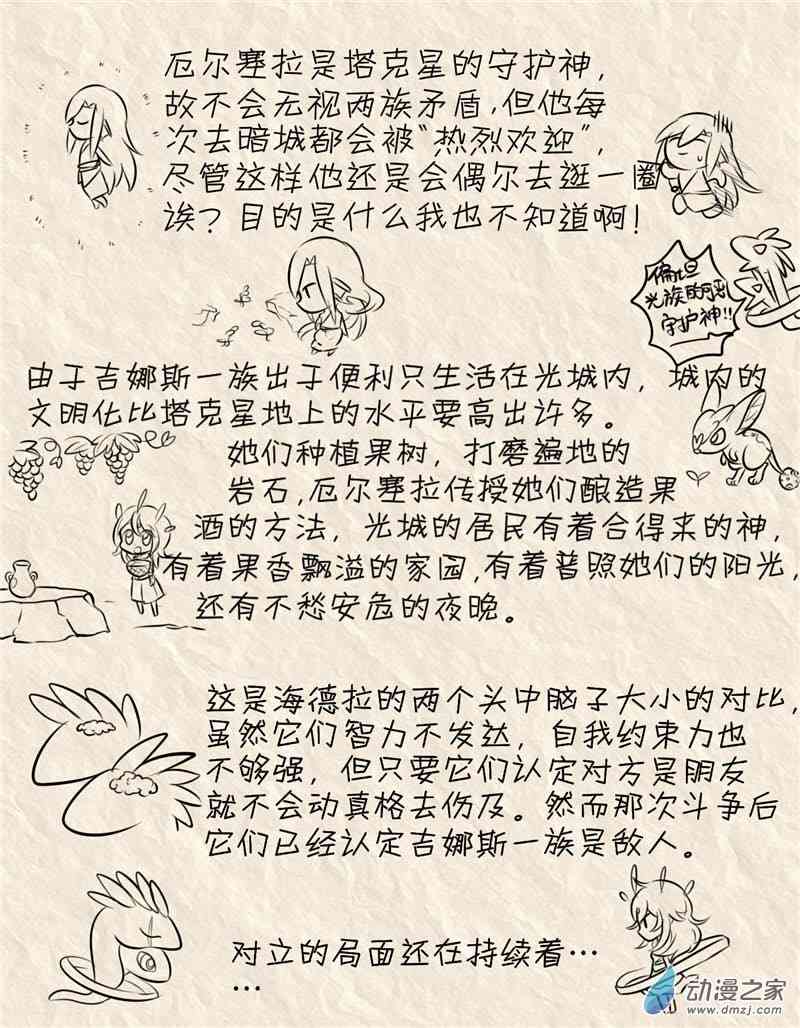 厄尔塞拉是塔克星的守护神，
故不会无视两族矛盾，但他每
次去暗城都会被“热烈欢迎”，
尽管这样他还是会偶尔去逛一圈
诶？目的是什么我也不知道啊！
偏坦
光族的
守护神!!
由于吉娜斯一族出于便利只生活在光城内，城内的
文明化比塔克星地上的水平要高出许多。
她们种植果树，打磨遍地的
岩石，厄尔塞拉传授她们酿造果
酒的方法，光城的居民有着合得来的神，
有着果香飘溢的家园，有着普照她们的阳光，
还有不愁安危的夜晚。
这是海德拉的两个头中脑子大小的对比，
虽然它们智力不发达，自我约束力也
不够强，但只要它们认定对方是朋友
就不会动真格去伤及。然而那次斗争后
它们已经认定吉娜斯一族是敌人。
对立的局面还在持续着…
…
动漫之家
www.dmzj.com